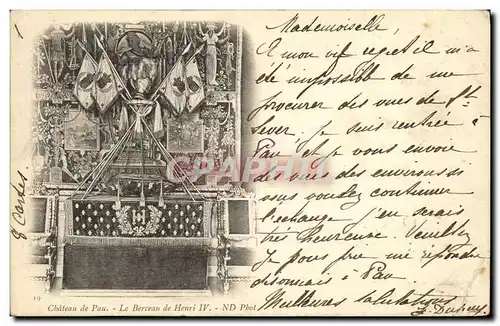 Mademoiselle,
A mon vif regret il m'a
été impossible de me
procurer des vues de St
Sever. Je suis rentrée à
Pau et je vous envoie
des vues des environs si
vous voulez continuer
l'échange j'en serais
très heureuse. Veuillez
je vous prie me répondre
à Pau
Meilleures salutations
8 cartes.
19
Château de Pau. - Le Berceau de Henri IV. - ND Phot
CPAPHIL.COM